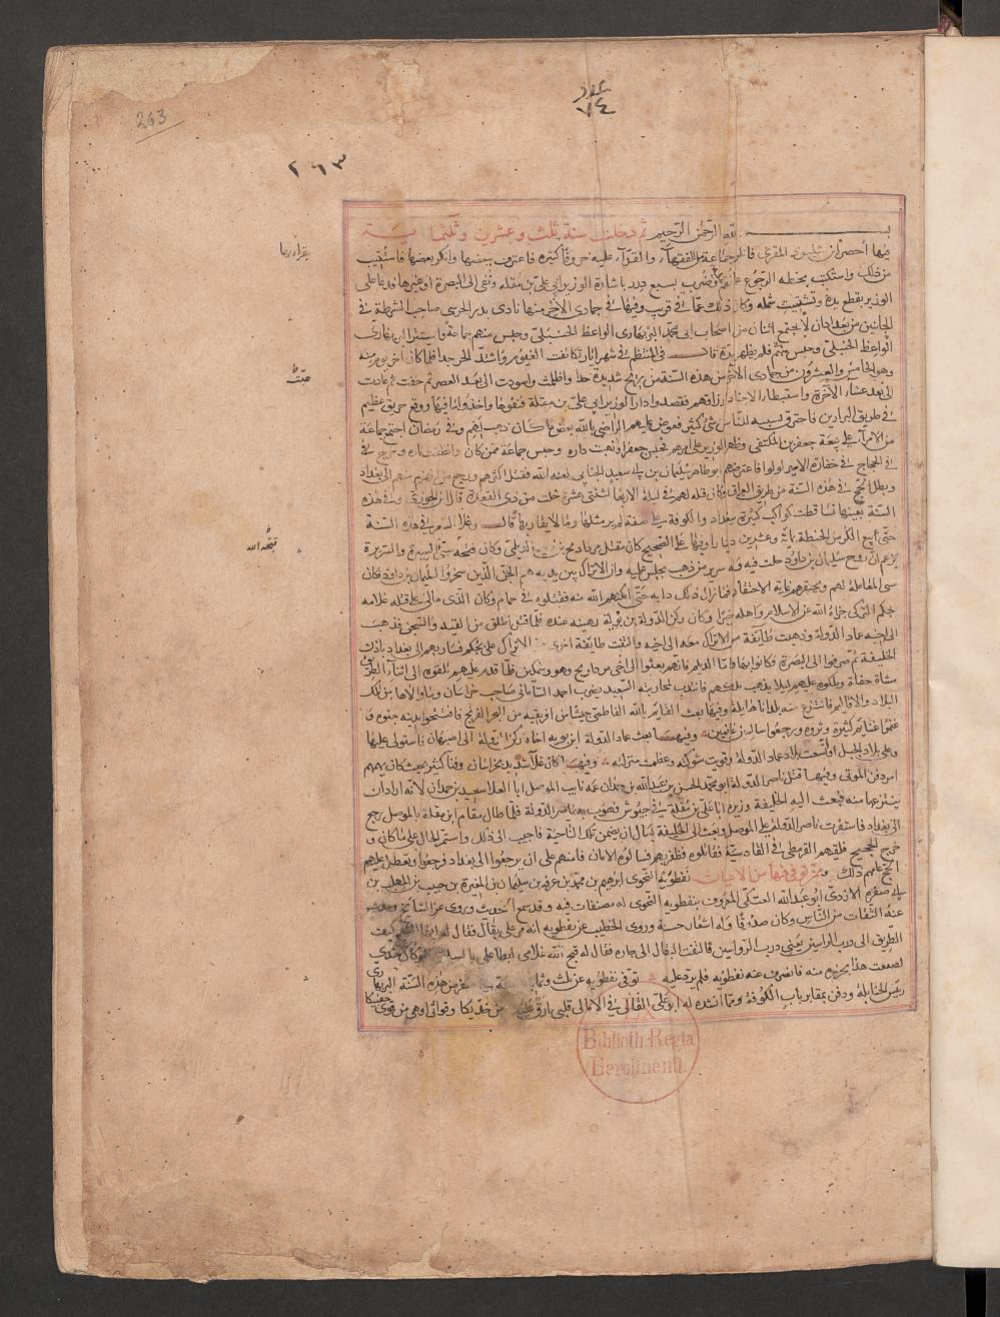 263
٢٦٣
٧٤
بسم الله الرحمن الرحيم ثم دخلت سنة ثلث وعشرين وثلثماية
فيها احضر ابن شنبوذ المقرى فانكر جماعة من الفقهاء والقراء عليه حروفا كثيرة فاعترف ببعضها وانكر بعضها فاستتيب
من ذلك واستكتب بخطه الرجوع وضرب سبع درر باشارة الوزير ابى على بن مقله ونفى الى البصرة او غيرها فدعا على
الوزير بقطع يده وتشتيت شمله وكان ذلك عما فى قريب وفيها فى جمادى الاخرة منها نادى بدر الخرسى صاحب الشرطة فى
الجانبين من بغداد ان لا يجتمع اثنان من اصحاب ابى محمد البربهارى الواعظ الحنبلى وحبس منهم جماعة واستتر ابن
الواعظ الحنبلى وحبس فلم يظهر مدة قال فى المنتظم فى شهر ايار تكاثفت الغيوم واشتد الحر جدا فلما كان اخر يوم منه
وهو الخامس والعشرون من جمادى الاخرة من هذه السنة هاج ريح شديدة جدا واظلمت واسودت الى بعد العصر ثم خفت ثم عادت
الى بعد عشاء الاخرة واستبطا الاجناد ارزاقهم فقصدوا دار الوزير ابى على بن مقلة فنقبوها واخذوا ما فيها ووقع حريق عظيم
فى طريق البزازين فاحترق بسببه للناس شئ كثير فعوض عليهم الراضى بالله بعض ما كان ذهب لهم وفى رمضان اجتمع جماعة
من الامراء على بيعة جعفر بن المكتفى وظهر الوزير على امرهم فحبس جعفر ونهبت داره وحبس جماعة ممن كان وخرج
الحجاج فى خفارة الامير لولو فاعترضهم ابو طاهر سليمان بن ابى سعيد الجنابى لعنه الله فقتل اكثرهم ورجع من انهزم منهم الى بغداد
وبطل الحج فى هذه السنة من طريق العراق وكان قتله لهم فى ليلة الاربعا لثنتى عشرة خلت من ذى القعدة قال ابن الجوزى وفى هذه
السنة بعينها تساقطت كواكب كثيرة ببغداد والكوفة على صفة لم ير مثلها وما يقاربها قال وغلا السعر فى هذه السنة
حتى ابيع الكر من الحنطة بمائة وعشرين دينارا وفيها على الصحيح كان مقتل مرداويح بن الديلمى وكان قبحه الله سئ السيرة والسريرة
يزعم ان روح سليمان بن داود حلت فيه وله سرير من ذهب يجلس عليه والاتراك بين يديه هم الجن الذين سخروا لسليمان بن داود وكان
سئ المعاملة لهم ويحتقرهم غاية الاحتقار فما زال ذلك دابه حتى امكنهم الله منه فقتلوه فى حمام وكان الذى مالى على قتله غلامه
بجكم التركى جزاه الله عن الاسلام واهله خيرا وكان ركن الدولة بن بويه رهينه عنده فلما قتل اطلق من القيد والسجن فذهب
الى اخيه عماد الدولة وذهبت طايفة من الاتراك معه الى اخيه والتفت طايفة اخرى من الاتراك على بجكم فسار بهم الى بغداد باذن
الخليفة ثم صرفوا الى البصرة فكانوا بها واما الديلم فانهم بعثوا الى اخى مرداويح وهو وشمكير فلما قدم عليهم تلقوه الى اثناء الطريق
مشاة حفاة
البلاد والاقاليم فانتزع منه بلدانا هايلة وفيها بعث القائم بالله الفاطمى جيشا من افريقيه من البحر الفرنج فافتتحوا مدينه جنوه و
غنموا غنائم كثيرة وثروة ورجعوا سالمين غانمين وفيها بعث عماد الدولة ابن بويه اخاه ركن الدولة الى اصبهان فاستولى عليها
وعلى بلاد الجبل واتسعت بلاد عماد الدولة وقويت شوكته وعظمت منزلته وفيها كان غلاء شديد بخراسان وفناء كثير بحيث كان يهمهم
امر دفن الموتى وفيها قتل ناصر الدولة ابو محمد الحسن بن عبد الله بن حمدان عمه نايب الموصل ابا العلا سعيد بن حمدان لانه اراد ان
ينتزعها منه فبعث اليه الخليفة وزيره ابا على بن مقلة فى جيوش فهرب منه ناصر الدولة فلما طال مقام ابن مقلة بالموصل رجع
الى بغداد فاستقرت ناصر الدولة على الموصل وبعث الى الخليفة يسال ان يضمن تلك الناحية فاجيب الى ذلك واستمر الحال على ما كان و
خرج الحجيج فلقيهم القرمطى فى القادسية فقاتلوه وظفر بهم فسالوه الامان فامنهم على ان يرجعوا الى بغداد فرجعوا وتعطل عليهم
الحج عامهم ذلك وممن توفى فيها من الاعيان نفطويه النحوى ابرهيم بن محمد بن عرفه بن سليمان بن المغيرة بن حبيب بن المهلب بن
ابى صفره الازدى ابو عبد الله العتكى المعروف بنفطويه النحوى له مصنفات فيه وقد سمع الحديث وروى عن المشايخ
عنه الثقات من الناس وكان صدوقا وله اشعار حسنة وروى الخطيب عن نفطويه انه مر على بقال فقال له ايها الشيخ كيف
الطريق الى درب الراسين يعنى درب الرواسين فالتفت البقال الى جاره فقال له قبح الله غلامى ابطا على
لصفعت هذا بحزمة منه فانصرف عنه نفطويه فلم يرد عليه توفى نفطويه عن ثلث وثمانين سنة من هذه السنة البربهارى
رئيس الحنابلة ودفن بمقابر باب الكوفة ومما انشده له ابو على القالى فى الامالى قلبى ارق عليك من خديكا وقوائى اوهى من قوى جفنيكا
قبحه الله
Biblioth. Regia
Berolinensi.